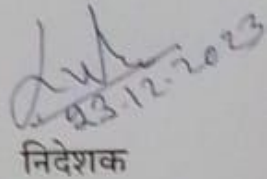 23.12.2023
निदेशक